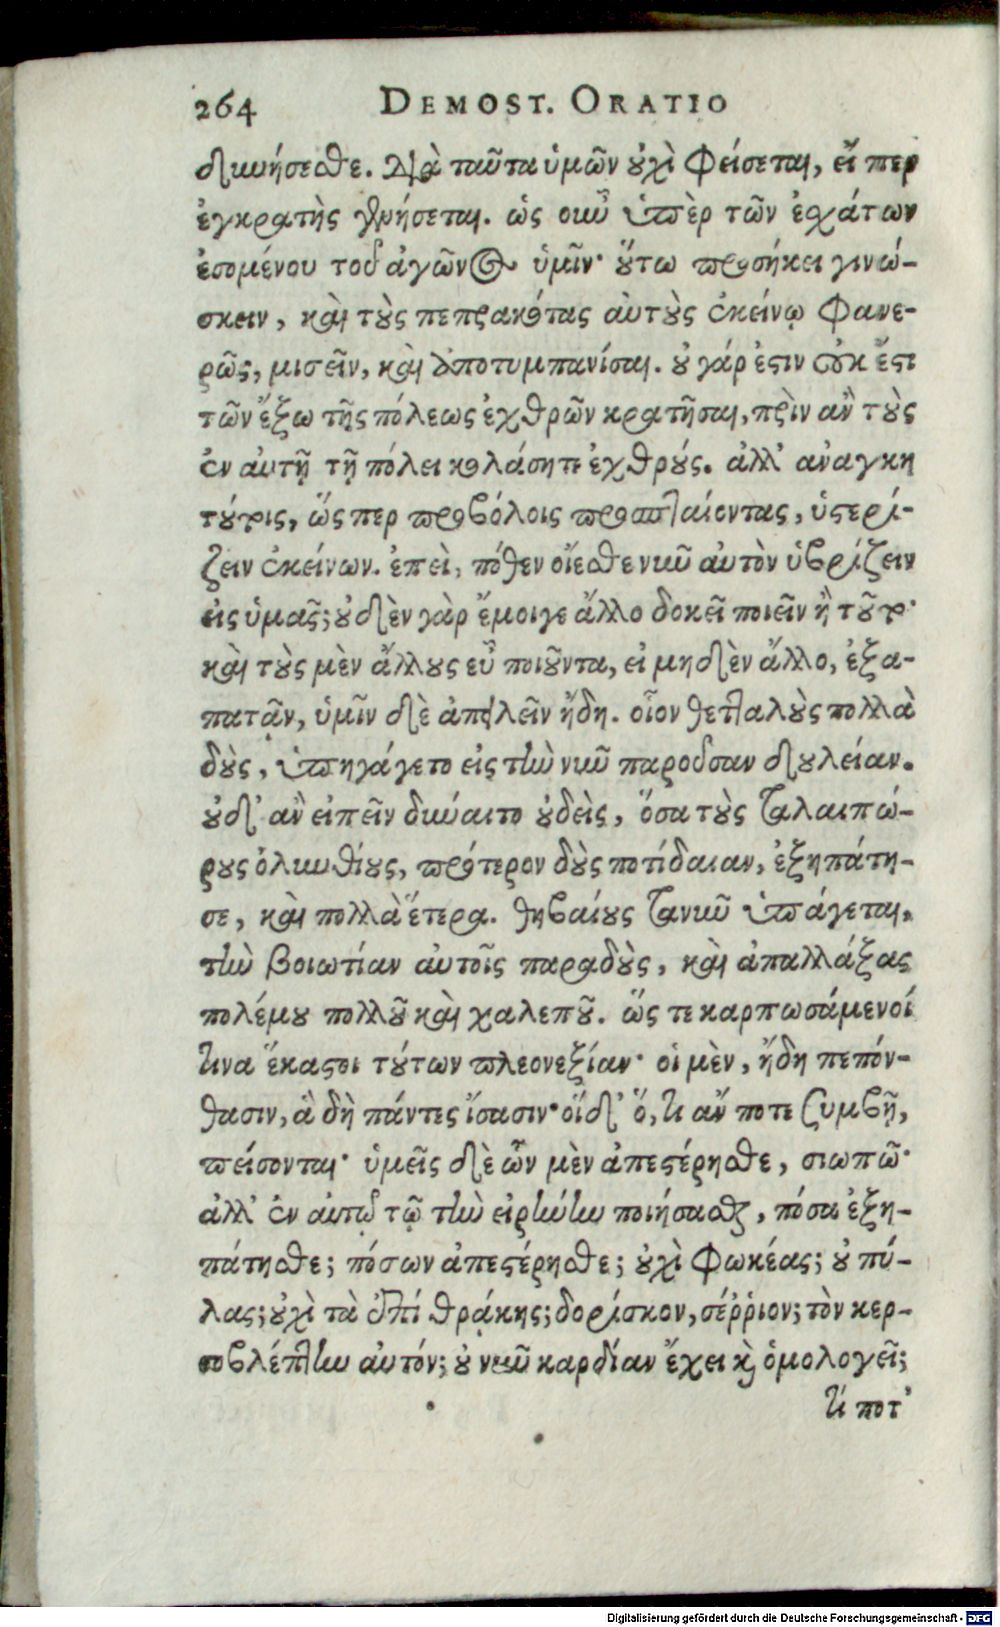 264 DEMOST. ORATIO
δυνήσεσθε. διὰ ταῦτα ὑμῶν οὐχὶ φείσεται, εἴ περ
ἐγκρατὴς γενήσεται. ὡς οὖν ὑπὲρ τῶν ἐσχάτων
ἐσομένου τοῦ ἀγῶνος ὑμῖν· οὕτω προσήκει γινώ-
σκειν, καὶ τοὺς πεπρακότας αὑτοὺς ἐκείνῳ φανε-
ρῶς, μισεῖν, καὶ ἀποτυμπανίσαι. οὐ γάρ ἐστιν οὐκ ἔστι
τῶν ἔξω τῆς πόλεως ἐχθρῶν κρατῆσαι, πρὶν ἂν τοὺς
ἐν αὐτῇ τῇ πόλει κολάσητε ἐχθρούς. ἀλλ' ἀνάγκη
τούτοις, ὥς περ προβόλοις προσπταίοντας, ὑστερί-
ζειν ἐκείνων. ἐπεὶ, πόθεν οἴεσθε νῦν αὐτὸν ὑβρίζειν
εἰς ὑμᾶς; οὐδὲν γὰρ ἔμοιγε ἄλλο δοκεῖ ποιεῖν ἢ τοῦτο·
καὶ τοὺς μὲν ἄλλους εὖ ποιοῦντα, εἰ μηδὲν ἄλλο, ἐξα-
πατᾷν, ὑμῖν δὲ ἀπειλεῖν ἤδη. οἷον θετταλοὺς πολλὰ
δοὺς, ὑπηγάγετο εἰς τὴν νῦν παροῦσαν δουλείαν.
οὐδ' ἂν εἰπεῖν δύναιτο οὐδεὶς, ὅσα τοὺς ταλαιπώ-
ρους ὀλυνθίους, πρότερον δοὺς ποτίδαιαν, ἐξηπάτη-
σε, καὶ πολλὰ ἕτερα. θηβαίους τανῦν ὑπάγεται,
τὴν βοιωτίαν αὐτοῖς παραδοὺς, καὶ ἀπαλλάξας
πολέμου πολλοῦ καὶ χαλεποῦ. ὥς τε καρπωσάμενοί
τινα ἕκαστοι τούτων πλεονεξίαν· οἱ μὲν, ἤδη πεπόν-
θασιν, ἃ δὴ πάντες ἴσασιν· οἵδ' ὅ, τι ἄν ποτε συμβῇ,
πείσονται· ὑμεῖς δὲ ὧν μὲν ἀπεστέρησθε, σιωπῶ·
ἀλλ' ἐν αὐτῷ τῷ τὴν εἰρήνην ποιήσασθαι, πόσα ἐξη-
πάτησθε; πόσων ἀπεστέρησθε; οὐχὶ φωκέας; οὐ πύ-
λας; οὐχὶ τὰ ἐπὶ θρᾴκης; δορίσκον, σέῤῥιον; τὸν κερ-
σοβλέπτην αὐτόν; οὐ νῦν καρδίαν ἔχει καὶ ὁμολογεῖ;
τί ποτ'
Digitalisierung gefördert durch die Deutsche Forschungsgemeinschaft - DFG